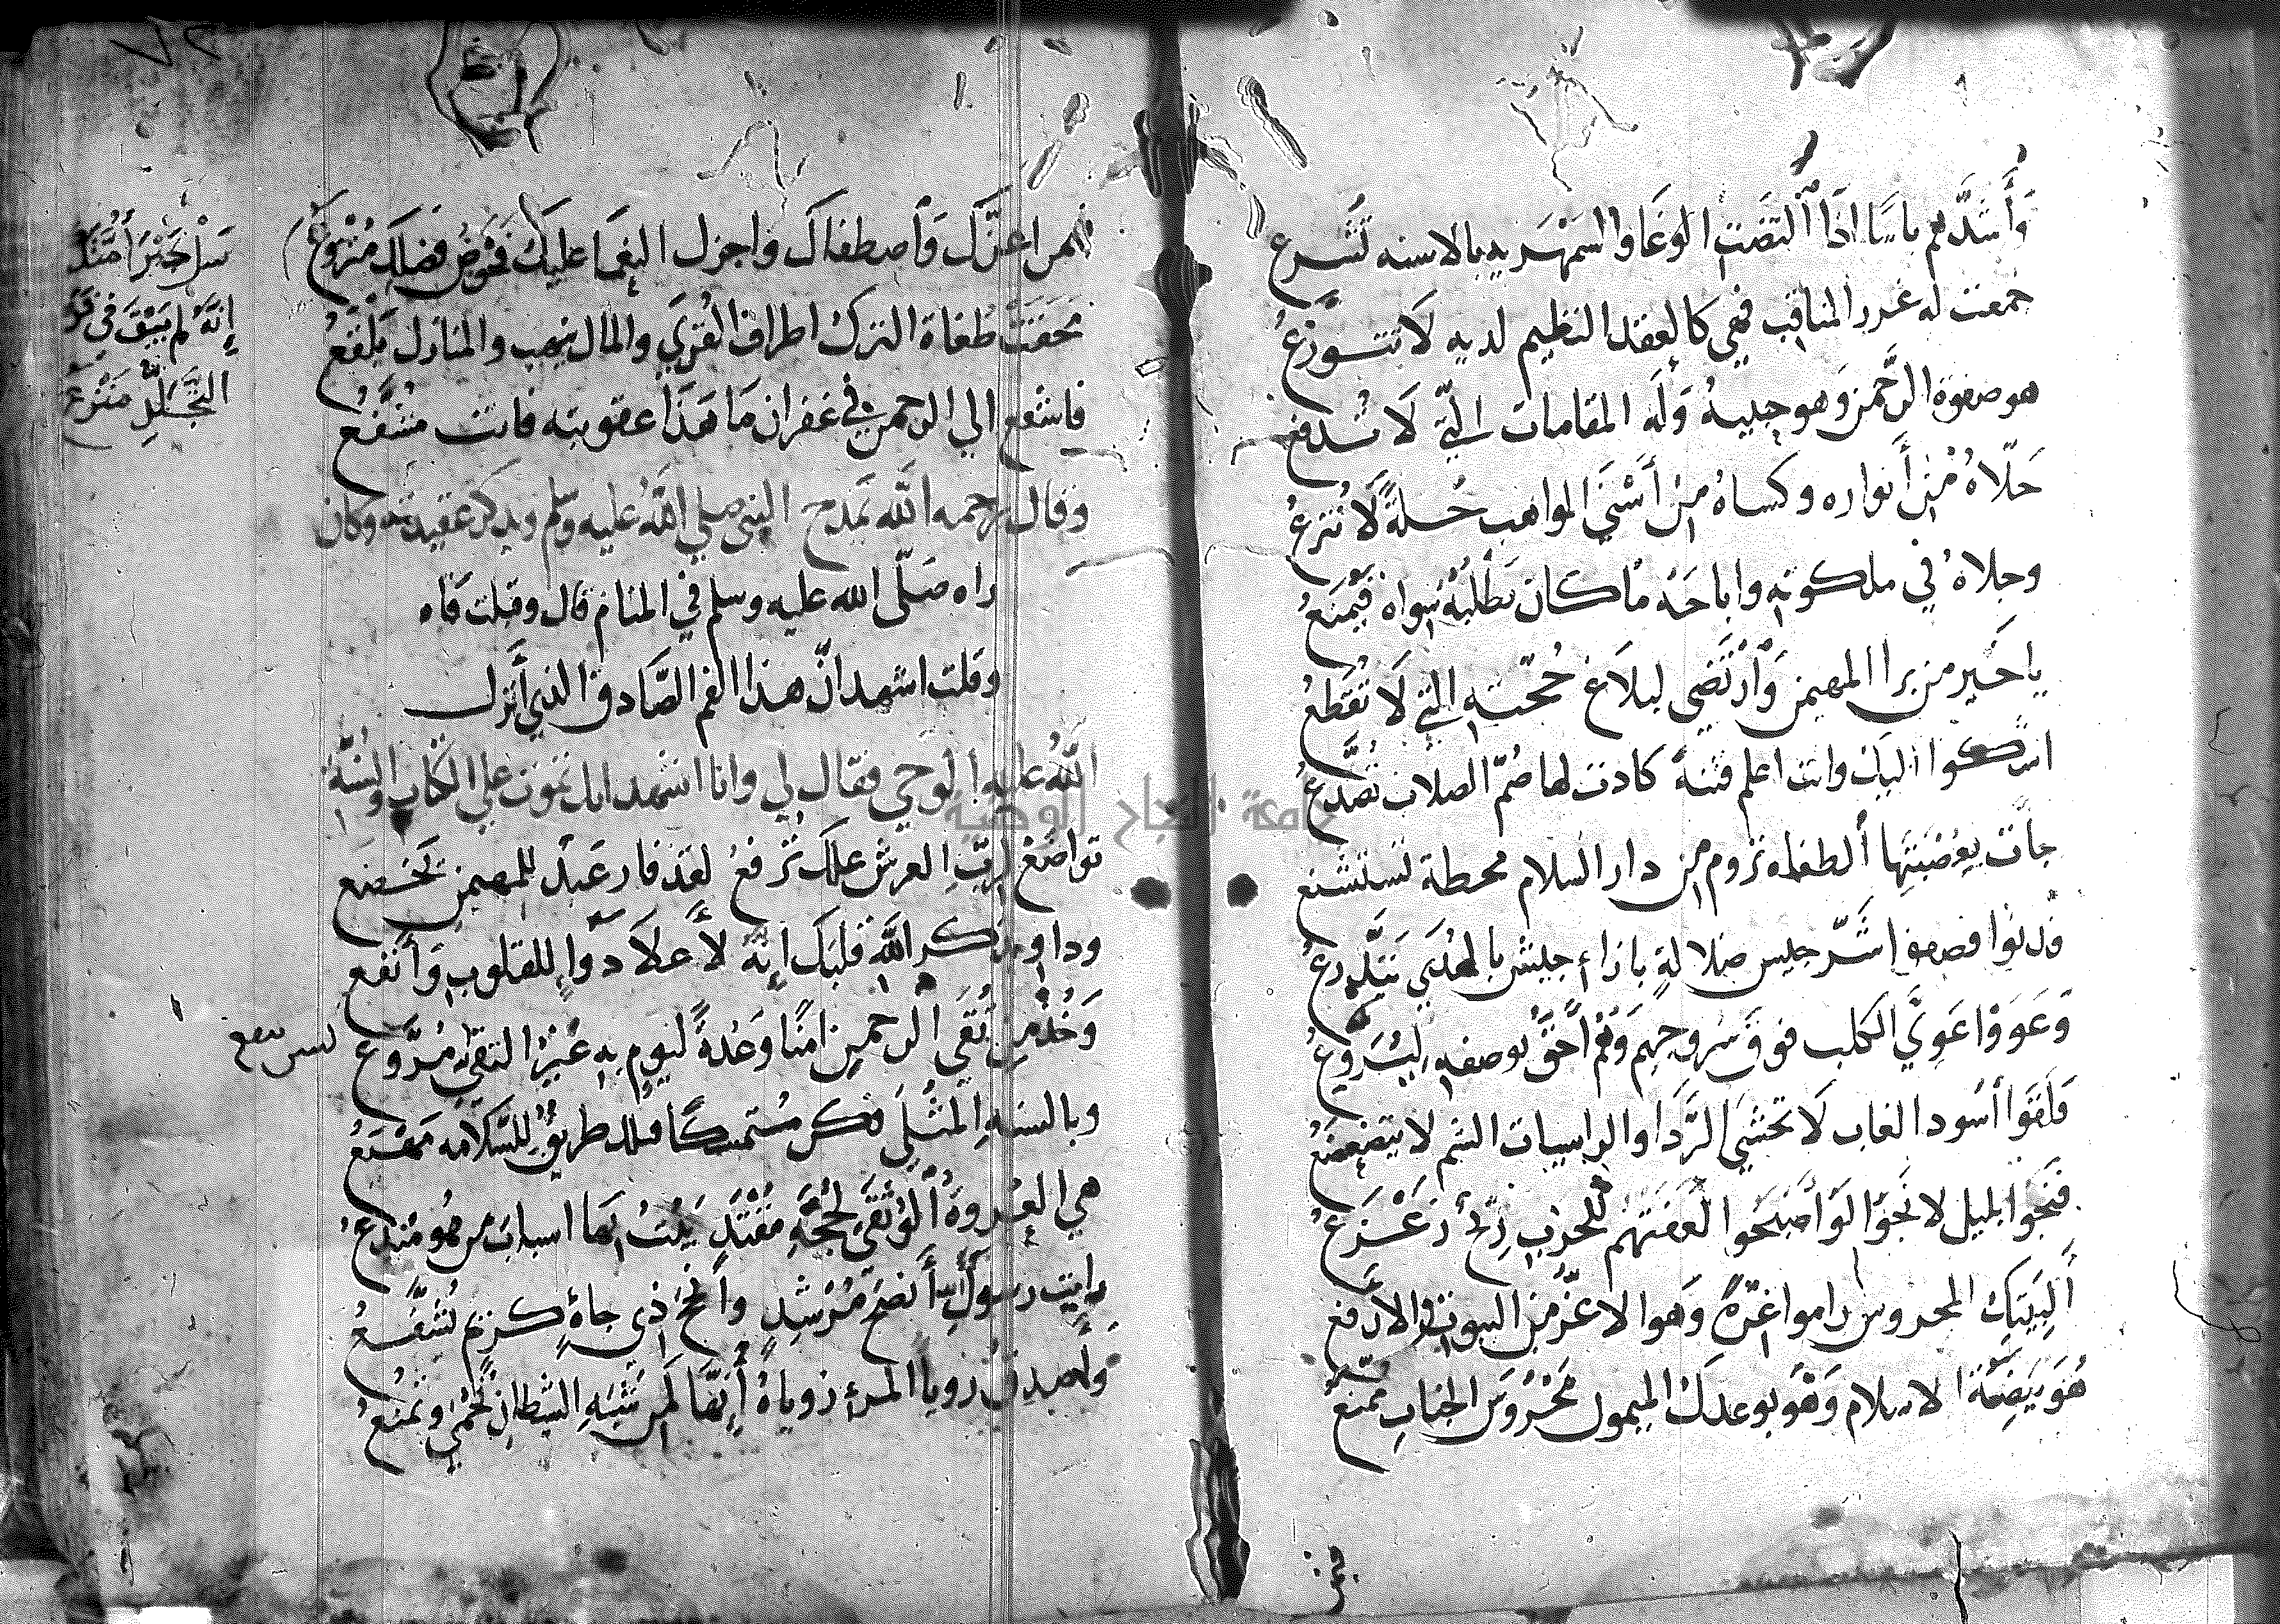 وَأَشَدَّهم باسًا اذَا التَضَت الوَغَا والسَمْهَريه بالاسنه تَشرع
جمعت له غرر المناقب فهي كالعقد النظيم لديه لا تتوزع
هو صفوة الرَّحمن وَهو حبيبهُ وَلَه المقامات التي لَا تُدفع
حَلّاهُ مْن أنواره وكساهُ من أَسْنَى المواهب حُلةً لا تُنزعُ
وجلاهُ في ملكوته واباحَهُ ما كان يَطْلبُهُ سواه فيُمنعُ
يا خَير من برا المهيمن وَارْتَضَى لبلاغ حُجّته التي لَا تُقطعُ
اشكوا اليك وانت اعلم فتنةً كادت لها صُمّ الصلاب تُصَدَّعُ
جأت يعُضبَتِهَا الطغاه تروم من دار السلام محطة تستشنع
فدنوا فصفوا شَرّ جيس ضلالةٍ بازاء جيش بالهُدَى يَتَدَّرعُ
وَعَووْا عَوِيَّ الكلب فوق سُروجهم وَهُم أحَقُّ بوصفه
فلَقوا أسُود الغاب لَا تخشى الرَّدَا والراسيات الشم لا يتضعضعُ
فنَجَوا بليل لا نجَوا لَو أصْبَحَوا لَعَفَتهُم للحَرب رِيحٌ زَعْزَعُ
أَلِبَيتِكِ المحروس راموا غرّةً وَهوا لاعزُّ من البيوت والارفع
هُوَ بَيضَةُ الاسلام وَهْوَ بوعدكَ الميمون مَحْرُوسَ الجنابِ مُمَنّعُ
فمن
فمن اعزّكَ وَاصطفاكَ واجزل النعمَا عليك فحَوضُ فضلكَ مُتْرَعُ
طغاة الترك اطراف القُرَى والمال ينهب والمنازل بَلْقعُ
فاشفع الي الرحمن في غفران مَا هَذَا عقوبته فانت مشَفَّعُ
وقال رحمه الله يَمدح النبى صلي اللهُ عليه وسلم ويذكر عقيدته وكان
راه صَلّى الله عليه وسلم في المنام قال وقبلت فاه
وقلت اشهد انّ هذا الفم الصَّادق الذي أُنزل
اللهُ عليه الوحي فقال لي وانا اشهد انك تموت علي الكتاب والسُنّة
تواضعْ لربِّ العرش علك تُرفعُ لقد فاز عَبدٌ للمهيمن يخضع
وداوِ بذكر اللهِ قلبَك إنهُ لأعلا دَواٍ للقلوبِ وَأنفع
وَخُذْ من تُقَى الرحمن امنًا وَعُدةً ليومٍ به غيرُ التقىّ مُرَوَّع
وبالسنه المثلَى فكن مُتمسكًا فتلك طريقٌ للسّلامه مَهْيَعُ
هي العُروةُ الوُثقَى لحُجّهِ مُقْتَدٍ بُتَتْ بها اسباب من هُو مبْتدع
رايت رسولَ الله أَنصَح مُرْشِدٍ وأنجح ذي جاهٍ كريم يُشَفَّعُ
وأصدقُ رويا المرء روياهُ أنها لمن شَبَهِ الشيطان تُحْمى وتُمْنَعُ
سَلْ نَصْرَ أُمَّتِكَ
إنّهُ لم يَبْقَ في قَوْ
التَّجَلُّدِ مَنْزَعُ
ليس ينفع
جامعة النجاح الوطنية